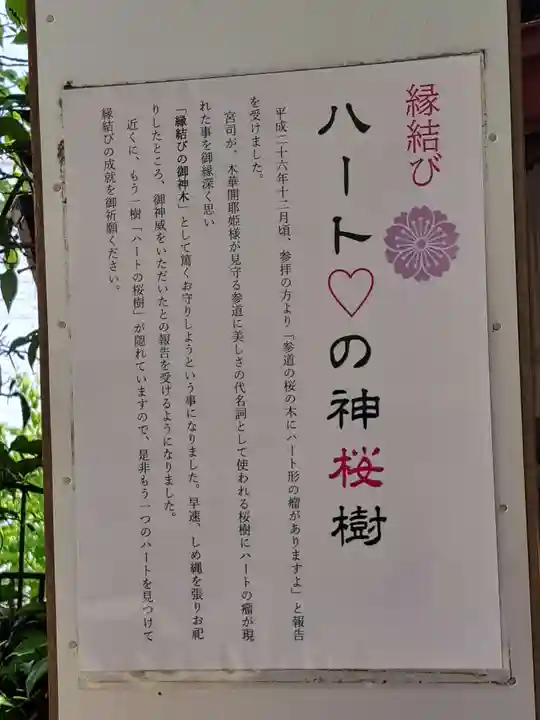 縁結び
ハート♡の神桜樹
平成二十六年十二月頃、参拝の方より「参道の桜の木にハート形の瘤がありますよ」と報告
を受けました。
宮司が、木華開耶姫様が見守る参道に美しさの代名詞として使われる桜樹にハートの瘤が現
れた事を御縁深く思い
「縁結びの御神木」として篤くお守りしようという事になりました。早速、しめ縄を張りお祀
りしたところ、御神威をいただいたとの報告を受けるようになりました。
近くに、もう一樹「ハートの桜樹」が隠れていますので、是非もう一つのハートを見つけて
縁結びの成就を御祈願ください。